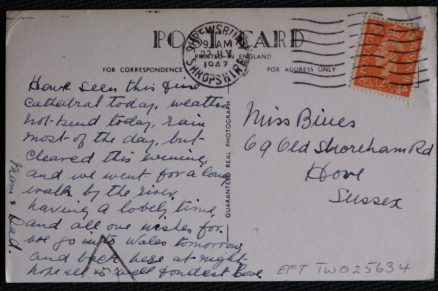 POST CARD
PRINTED IN ENGLAND
FOR CORRESPONDENCE
FOR ADDRESS ONLY
SHREWSBURY
9 AM
1947
SHROPSHIRE
GUARANTEED REAL PHOTOGRAPH
Have seen this fine
Cathedral today, weather
not kind today, rain
most of the day, but
cleared this evening,
and we went for a long
walk by the river
having a lovely time,
and all one wishes for.
we go into Wales tomorrow,
and back here at night
hope all is well fondest love
Mum & Dad.
Miss
69 Old Shoreham Rd
Hove
Sussex
EFT TW025634